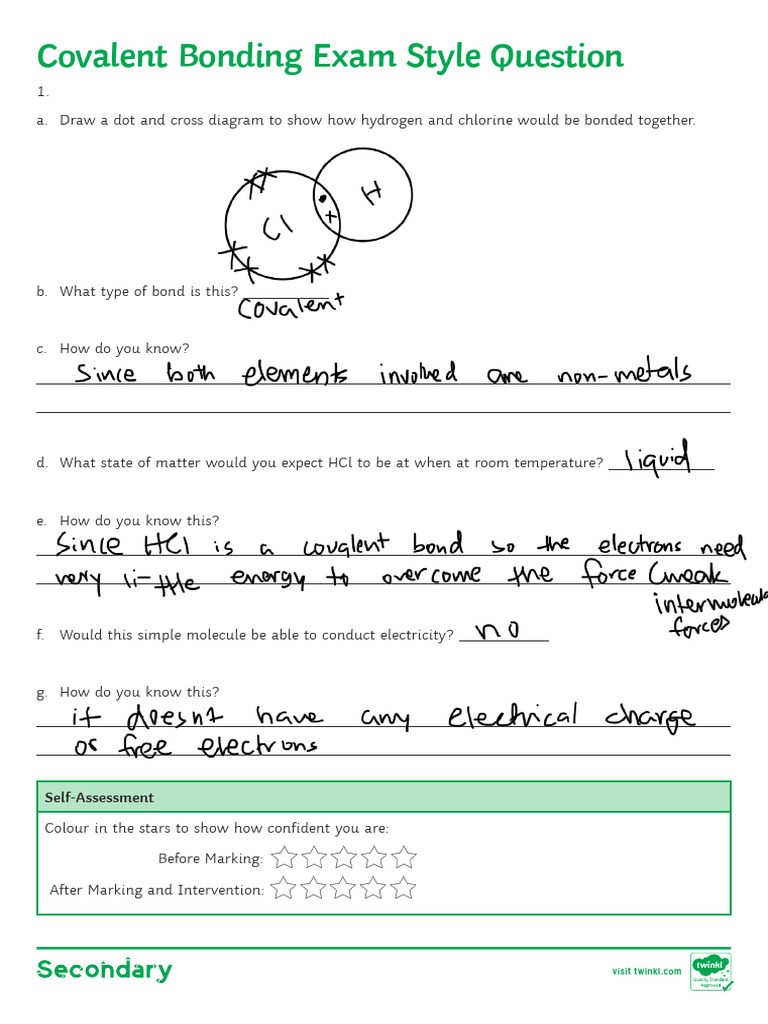 Covalent Bonding Exam Style Question
1.
a. Draw a dot and cross diagram to show how hydrogen and chlorine would be bonded together.
H
Cl
b. What type of bond is this?
Covalent
c. How do you know?
Since both elements involved are non-metals
d. What state of matter would you expect HCl to be at when at room temperature? liquid
e. How do you know this?
Since HCl is a covalent bond so the electrons need
very li-ttle energy to overcome the force (weak
intermolecula
forces)
f. Would this simple molecule be able to conduct electricity? no
g. How do you know this?
it doesn't have any electrical charge
or free electrons
Self-Assessment
Colour in the stars to show how confident you are:
Before Marking:
After Marking and Intervention:
Secondary
visit twinkl.com
twinkl
Quality Standard
Approved